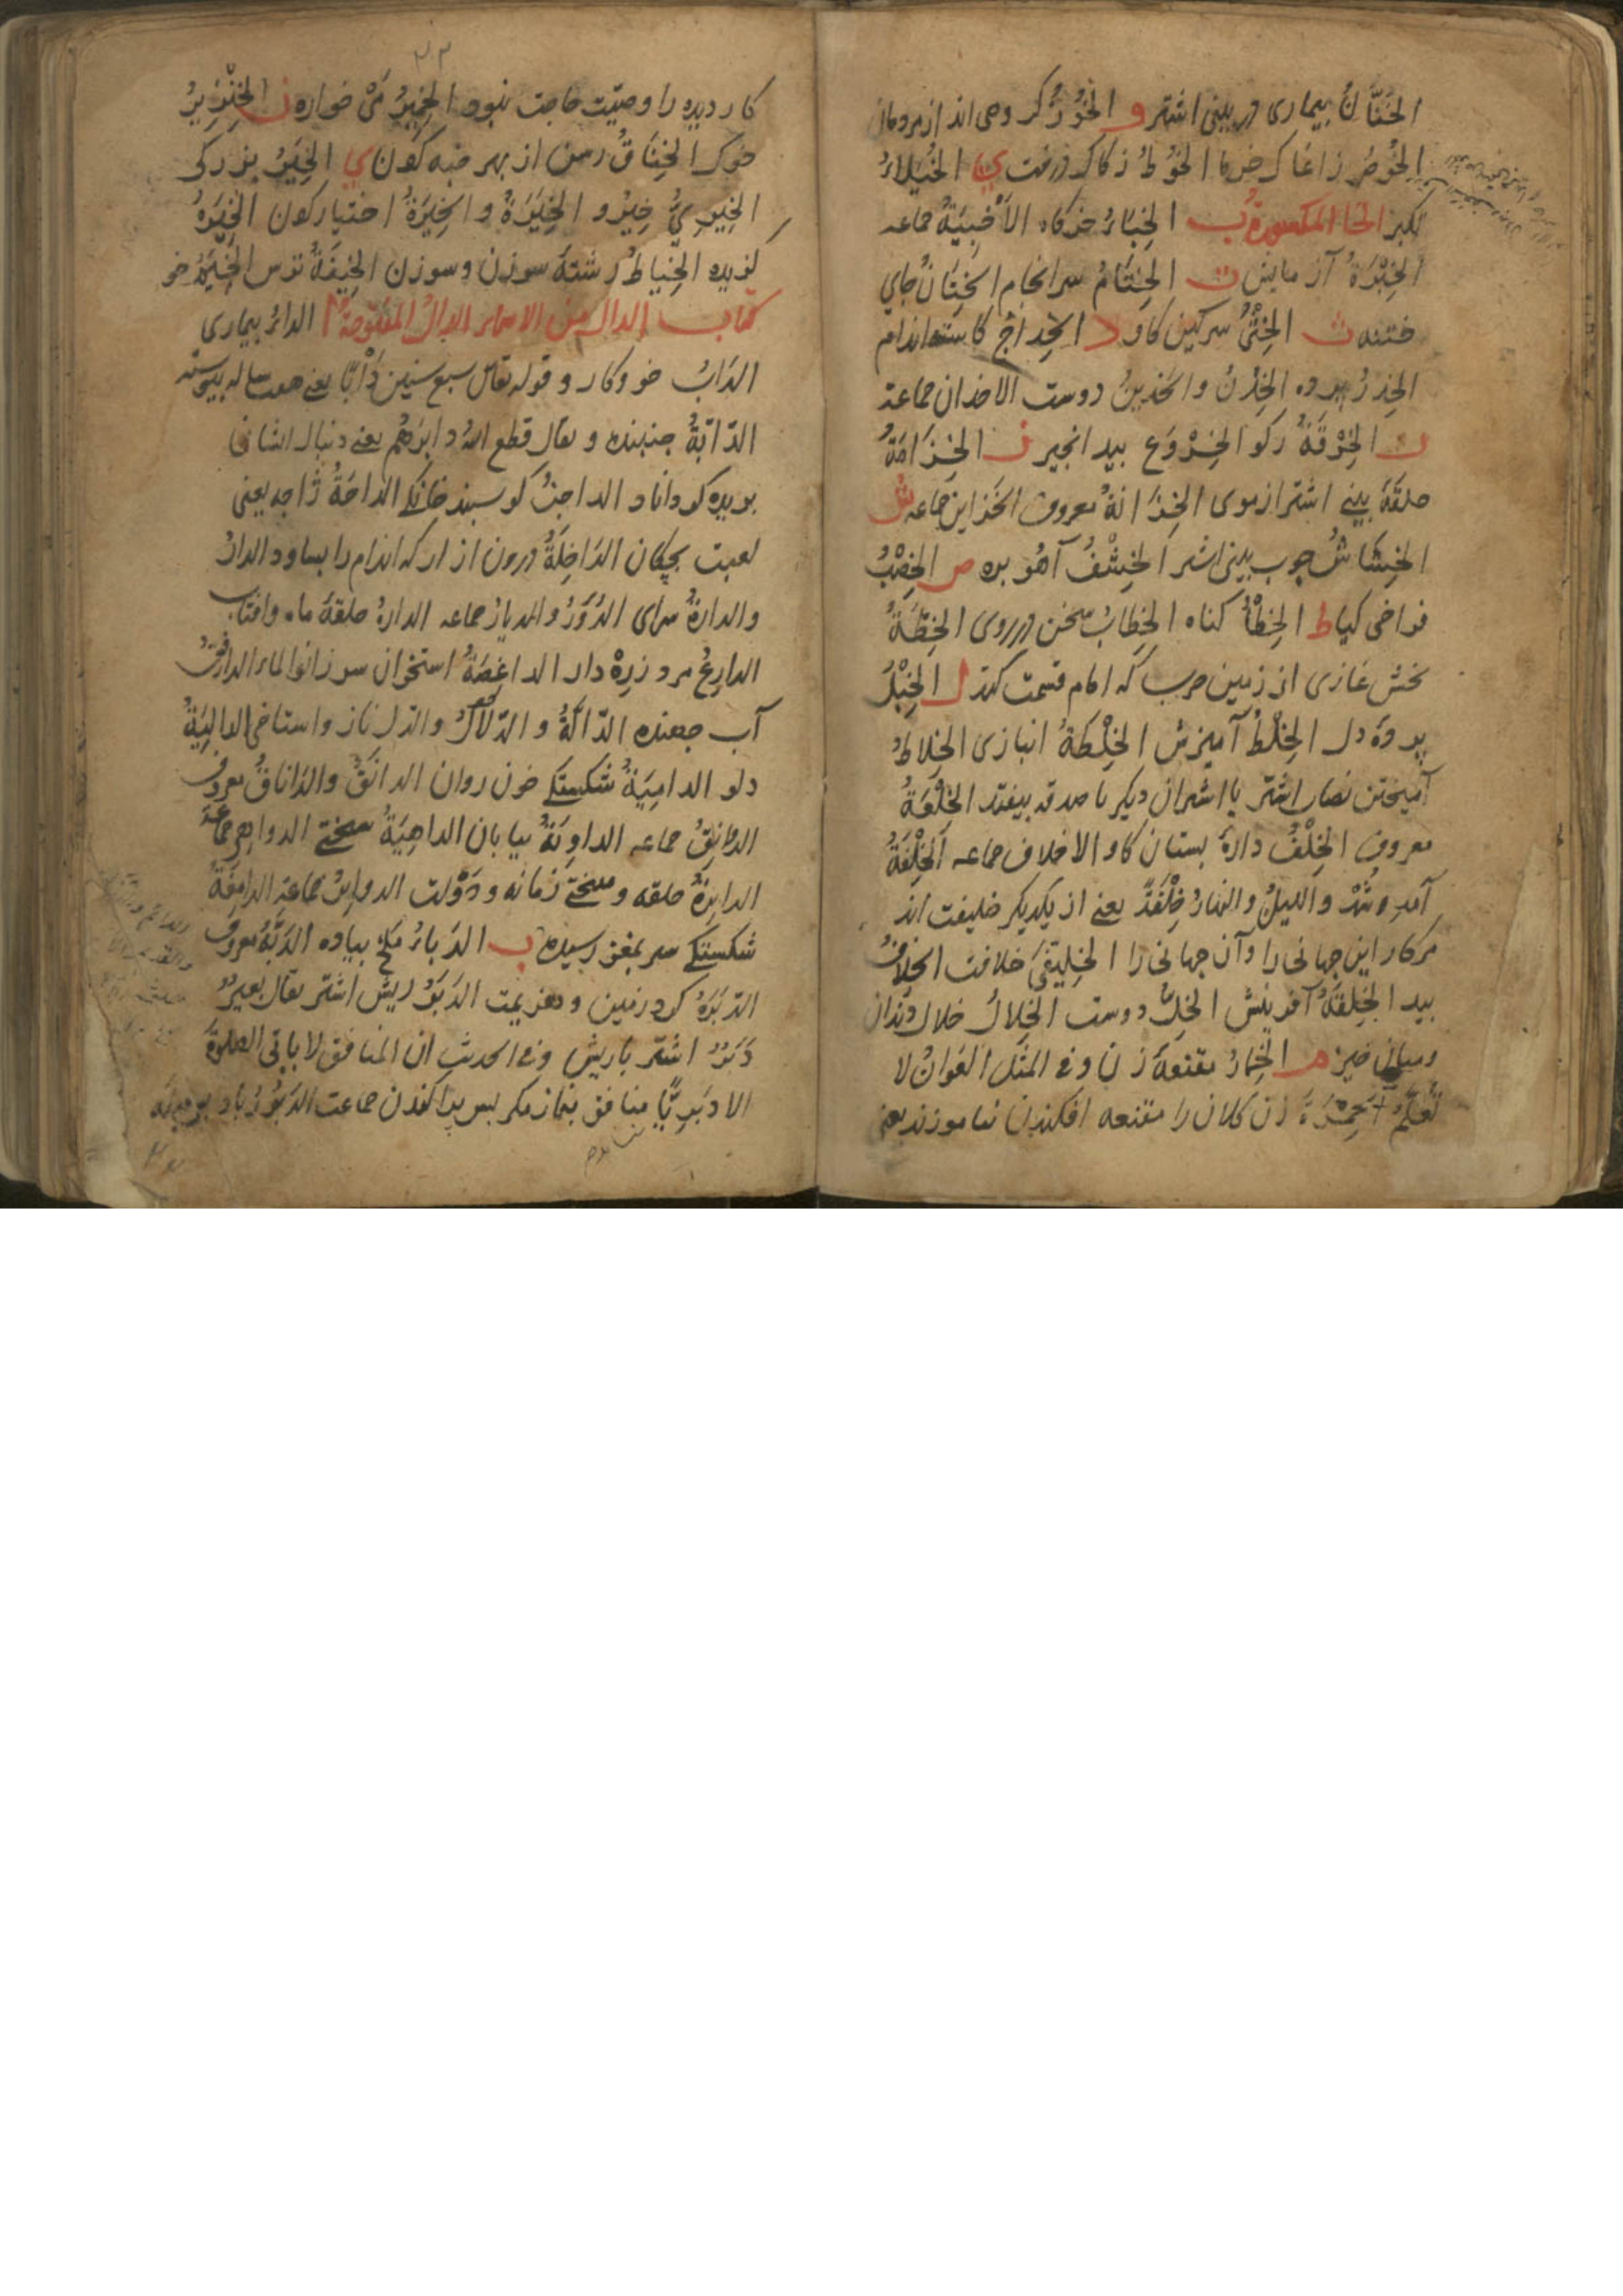 الخُنَانُ بیماری در بینی اشتر و الخُوَّزُ کر وهی اند از مردمان
الخُوصُ زاغاک خرما الخُوطُ زکاک درخت ي الخُیَلاءُ
تکبر الخا المکسورة ب الخِبَاءُ خرکاه الاَخْبِیَةُ جماعه
الخِبْرَةُ آزمایش ت الخِتَامُ سرانجام الخِتَانُ جای
ختنه ث الخِثْیُ سرکین کاو د الخِدَاجُ کاسته اندام
الخِدْرُ پرده الخِدْنُ والخَدِینُ دوست الاخدان جماعة
ر الخِرْقَةُ رکو الخِرْوَع بید انجیر ز الخِزَامَةُ
حلقهٔ بینی اشتر از موی الخِزَانَةُ معروف الخزاین جماعه ش
الخِشَاشُ چوب بینی اشتر الخِشْفُ آهو بره ص الخِصْبُ
فراخی کیا ط الخِطْأُ کناه الخِطَابُ سخن در روی الخِطَّةُ
بخش غازی از زمین حرب که امام قسمت کند ل الخِلْبُ
پردهٔ دل الخِلْطُ آمیزش الخِلْطَةُ انبازی الخِلَاطُ
آمیختن نصاب اشتر با اشتران دیکر تا صدقه بیفتد الخِلْعَةُ
معروف الخِلْفُ دارهٔ پستان کاو الاخلاف جماعه الخِلْفَةُ
آمد و شد واللیلُ والنهارُ خِلْفَةً یعنے از یکدیکر خلیفت اند
مرکار این جهانی را وآن جهانی را الخِلِّیفَی خلافت الخِلَافُ
بید الخِلْقَةُ آفرینش الخِلُّ دوست الخِلَالُ خلال دندان
ومیان چیز م الخِمَارُ مقنعهٔ زن وفی المثل العَوَانُ لا
تُعَلَّمُ الخِمْرَةَ زن کلان را مقنعه افکندن نیاموزند یعنے
کار دیده را وصیّت حاجت نبود الخِمِّیرُ مَیْ خواره ن الخِنْزِیرُ
خوک الخِنَاقُ رسن از بهر خبه کردن ي الخِیرُ بزرکی
الخِیرِیُّ خیرو الخِیَرَةُ والخِیْرَةُ اختیار کردن الخِیَرَةُ
کزیده الخِیَاطُ رشتهٔ سوزن وسوزن الخِیفَةُ ترس الخِیمُ خو
کتاب الدال من الاسماء الدال المفتوحة ا الداءُ بیماری
الدَابُ خو وکار و قوله تعالی سبع سنین دَاْبًا یعنے هفت ساله پیوسته
الدّابَّةُ جنبنده و یقال قطع الله دابرهم یعنے دنبال ایشان
بریده کرداناد الداجنُ کوسبند خانکی الداحَةُ ژاجه یعنی
لعبت بچکان الدَاخِلَةُ درون ازار که اندام را بساود الدارُ
والدارةُ سرای الدُّوَرُ والدیار جماعه الدارةُ حلقهٔ ماه وافتاب
الدارِعُ مرد زره دار الداغِصَةُ استخوان سر زانو الماء الدافِقُ
آب جهنده الدّالَّةُ و الدَّلَالُ والدّل ناز واستاخی الدالِیَةُ
دلو الدامِیَةُ شکستکے خون روان الدانَقُ والدَاناقُ معروف
الدَوَانِقُ جماعه الداوِیَةُ بیابان الداهِیَةُ سختے الدواهی جماعة
الدایِرَةُ حلقه و سختے زمانه و دَوْلت الدوایرُ جماعة الدامِغَةُ
شکستکے سر بمغز رسیده ب الدَبَاءُ ملخ بیاده الدَبَّةُ معروف
الدَبْرَةُ کرد زمین و هزیمت الدَبَرُ ریش اشتر یقال بعیرٌ
دَبِرٌ اشتر باریش وفی الحدیث ان المنافق لا یاتی الصلوةَ
الا دَبَرِیًّا منافق بنماز مکر بس براکندن جماعت الدَبُورُ باد بر میانه